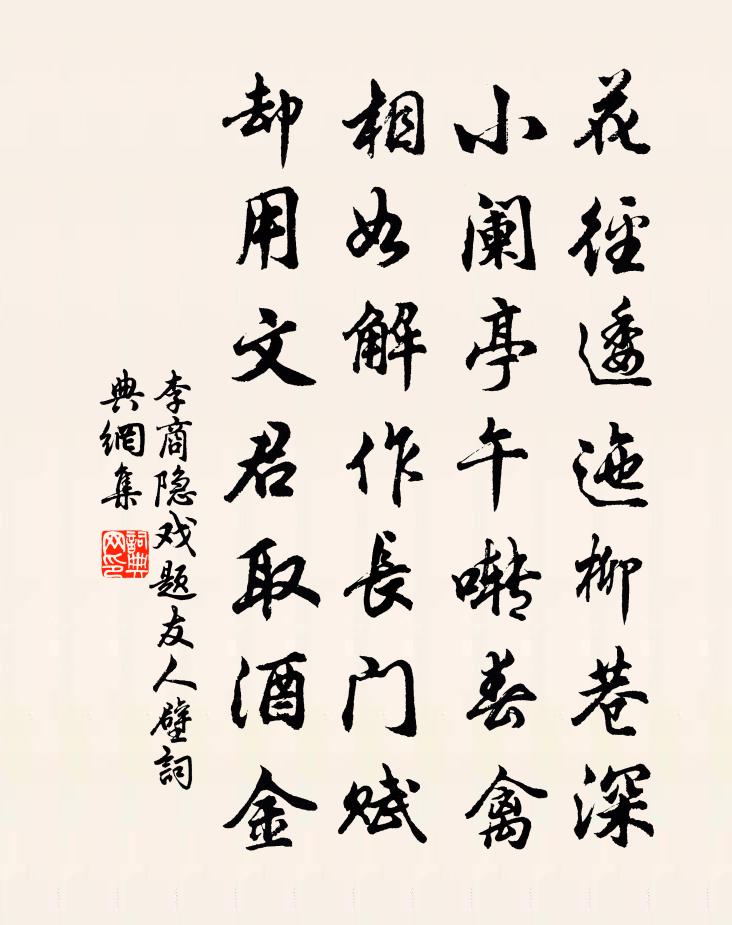 花径逶迤柳巷深
小阑亭午啭春禽
相如解作长门赋
却用文君取酒金
李商隐戏题友人壁词
典網集
詞典网印